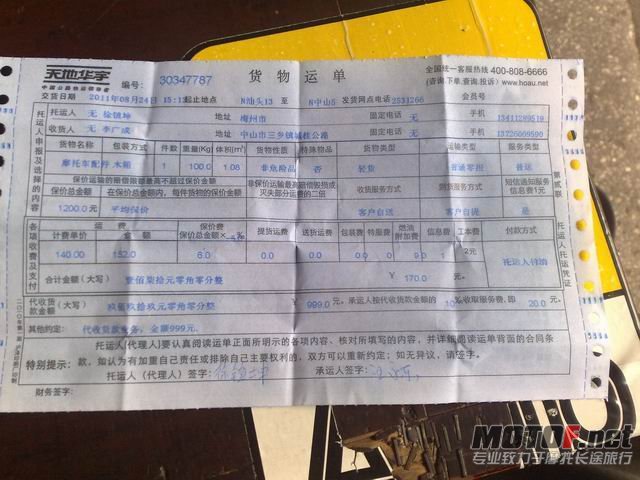 天地华宇
中国公路快运领导者
编号: 30347787
货物运单
全国统一客服热线 400-808-6666
(咨询.下单.查货.投诉) http://www.hoau.net
交货日期 2011年08月24日 15:1 起止地点 N汕头13 至 N中山5 发货网点电话 2531266 会员号
托运人 无 徐镇坤 地址 梅州市 固定电话 无 手机 13411289519
收货人 无 李广成 地址 中山市三乡镇城桂公路 固定电话 无 手机 13726009590
托运人申报及选择的内容
货物名称 包装形式 件数 重量(Kg) 体积(m³) 货物性质 特殊物品 货物类型 运输方式 服务类型
摩托车配件 木箱 1 100.0 1.08 非危险品 否 轻货 普通零担 普运
保价运输的赔偿限额最高不超过保价金额
保价总金额 在保价总金额内，每件货物的保价金额
非保价运输最高赔偿毁损或灭失部分运费的二倍
收货服务方式 到货服务方式 短信通知服务信息费1元
1200.0元 平均保价 客户自送 客户自提 是
各项收费及支付
运费 保价费 提货运费 送货运费 包装费 特服费 燃油附加费 信息费 工本费 付款方式
计费单价 金额 保价总金额×
140.00 152.0 6.0 0.0 0.0 0.0 0.0 9.0 1 2元 托运人付清
合计金额(大写) 壹佰柒拾元零角零分整 ¥ 170.0 元
代收货款(大写) 玖佰玖拾玖元零角零分整 ¥ 999.0元。承运人按代收货款金额的 收取服务费,即 20.0 元。
其他约定: 代收货款业务,金额999元。
特别提示:
托运人(代理人)要认真阅读运单正面所明示的各项内容、核对所填写的内容，并详细阅读运单背面的合同条
款，如认为有加重自己责任或排除自己主要权利的，双方可以重新约定；如无异议，请签字。
托运人（代理人）签字: 徐镇坤 承运人签字:
财务签字:
第贰联
托运人托运凭证
MOTOF.net
专业致力于摩托长途旅行